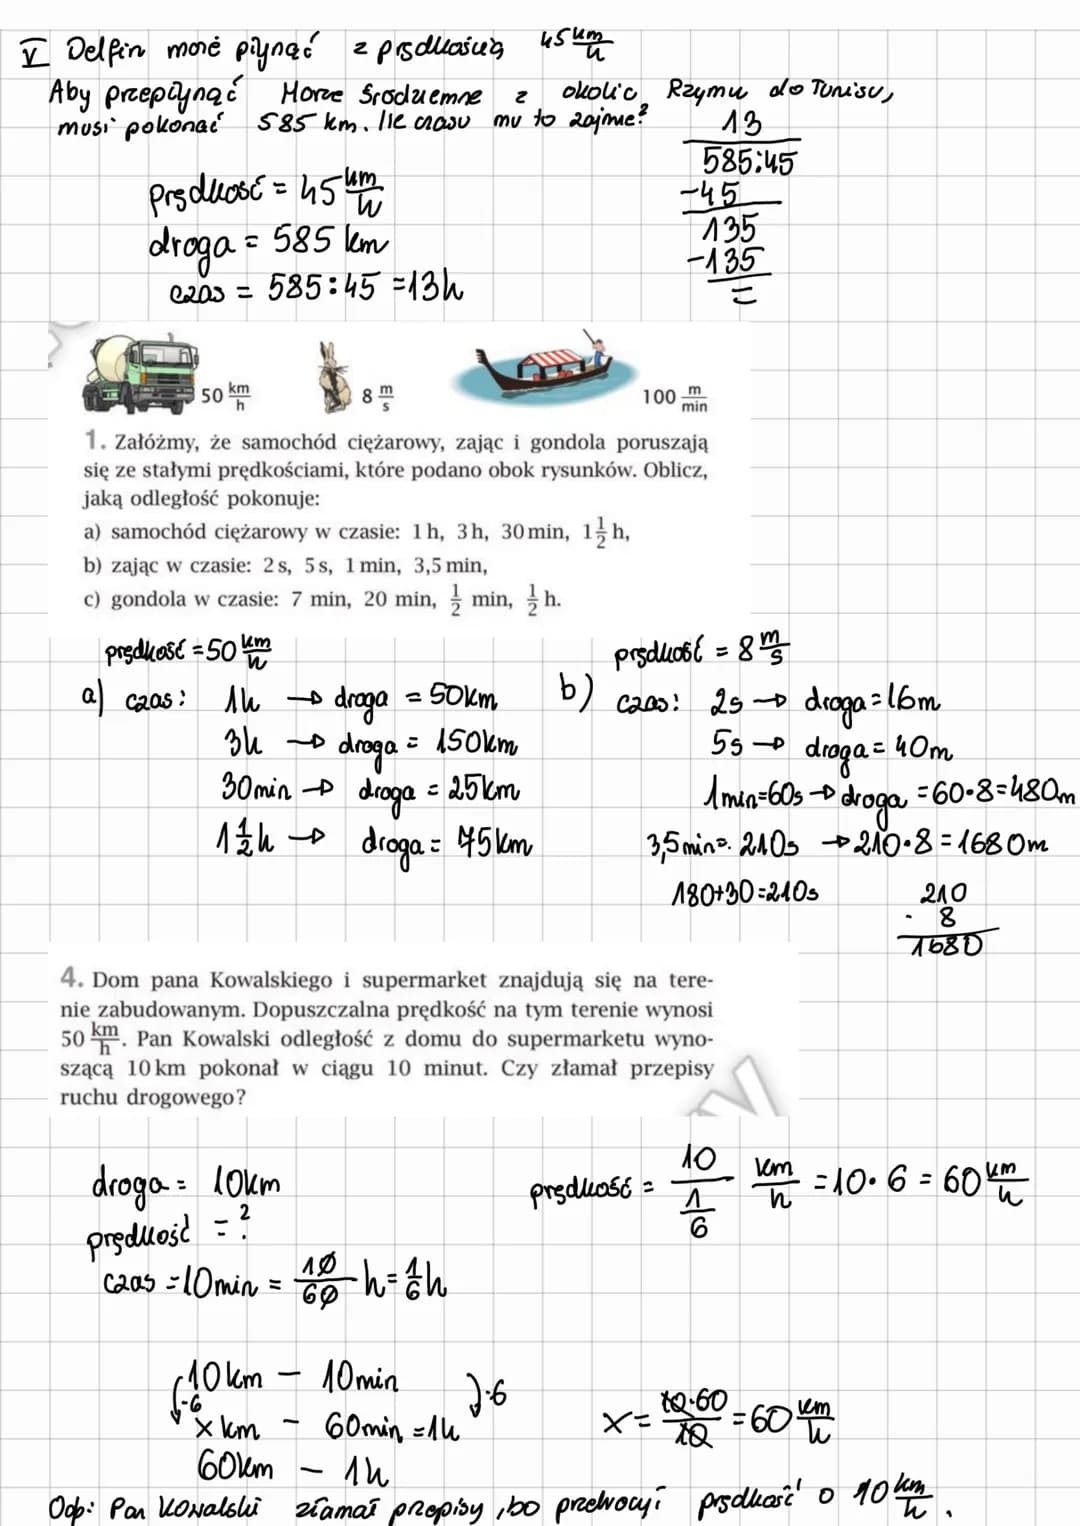 V Delfin może płynąć z prędkością 45 km/h
Aby przepłynąć Morze Śródziemne z okolic Rzymu do Tunisu,
musi pokonać 585 km. Ile czasu mu to zajmie?
13
585:45
-45
135
-135
=
prędkość = 45 km/h
droga = 585 km
czas = 585:45 =13h
50 km/h
8 m/s
100 m/min
1. Załóżmy, że samochód ciężarowy, zając i gondola poruszają
się ze stałymi prędkościami, które podano obok rysunków. Oblicz,
jaką odległość pokonuje:
a) samochód ciężarowy w czasie: 1 h, 3 h, 30 min, 1 1/2 h,
b) zając w czasie: 2 s, 5 s, 1 min, 3,5 min,
c) gondola w czasie: 7 min, 20 min, 1/2 min, 1/2 h.
prędkość = 50 km/h
a) czas: 1h → droga = 50km
3h → droga = 150km
30min → droga = 25km
1 1/2 h → droga = 75km
prędkość = 8 m/s
b) czas: 2s → droga = 16m
5s → droga = 40m
1min=60s → droga = 60·8=480m
3,5min = 210s → 210·8 = 1680m
180+30=210s
210
· 8
1680
4. Dom pana Kowalskiego i supermarket znajdują się na tere-
nie zabudowanym. Dopuszczalna prędkość na tym terenie wynosi
50 km/h. Pan Kowalski odległość z domu do supermarketu wyno-
szącą 10 km pokonał w ciągu 10 minut. Czy złamał przepisy
ruchu drogowego?
droga = 10km
prędkość = ?
czas = 10min = 10/60 h = 1/6 h
prędkość = 10/(1/6) km/h = 10·6 = 60 km/h
10km – 10min
·6 ·6
x km – 60min = 1h
60km – 1h
x = 10·60/10 = 60 km/h
Odp: Pan Kowalski złamał przepisy, bo przekroczył prędkość o 10 km/h.